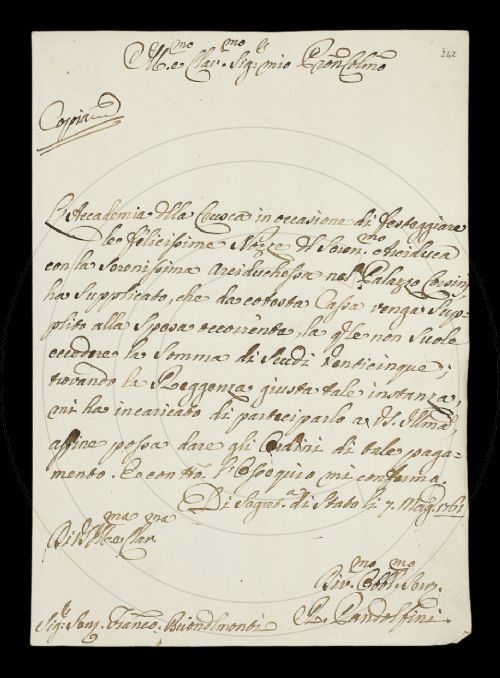 242
Ill.mo e Clar.mo Sig.r mio Pron Colmo
Copia
L'Accademia della Crusca in occasione di festeggiare
le felicissime Nozze del Seren.mo Arciduca
con la Serenissima Arciduchessa nel Palazzo Corsini
ha supplicato, che da cotesta Cassa venga sup=
plito alla Spesa occorrente, la q.le non suole
eccedere la Somma di Scudi Venticinque;
trovando la Reggenza giusta tale instanza,
mi ha incaricato di parteciparlo a VS. Ill.ma,
affine possa dare gli Ordini di tale paga=
mento. E con tto. l'Ossequio mi confermo.
Di Segret.a di Stato li 7. Mag. 1761
Di VS Ill.ma e Clar.ma
Dev.mo Obbl.mo Serv.
Sig.r Sen. Franco. Buondelmonti
P. Pandolfini